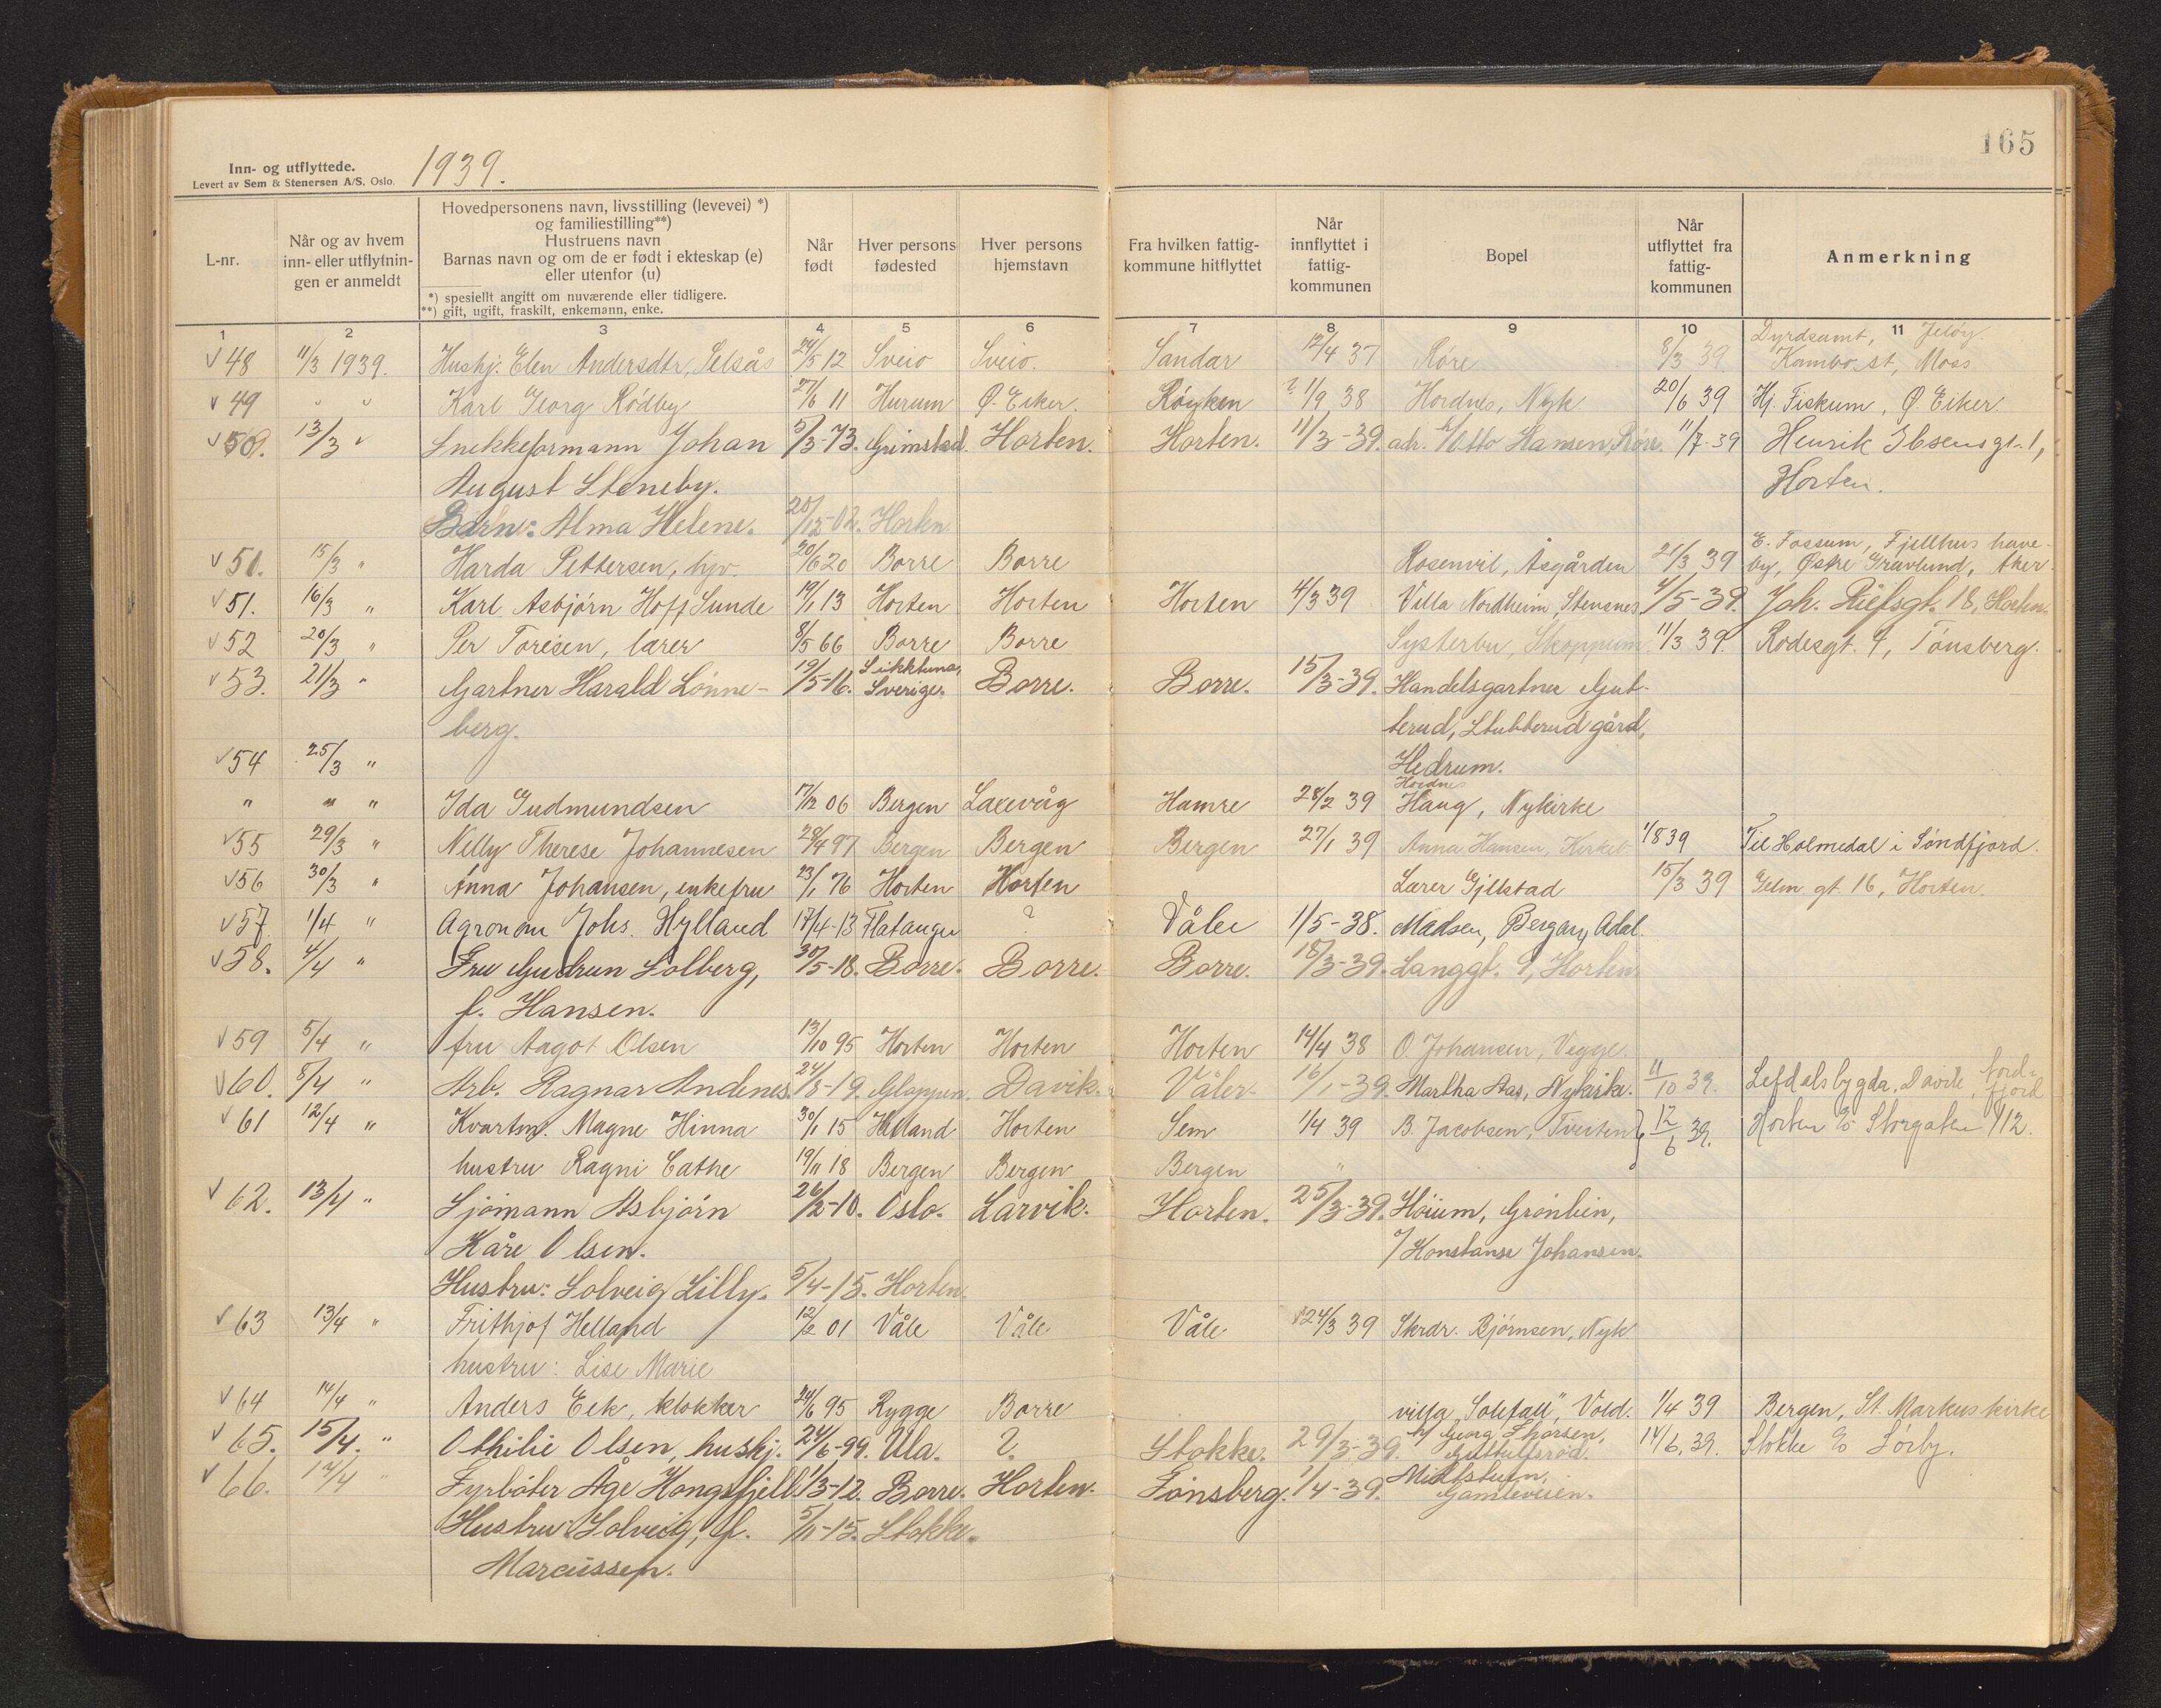 165
Inn- og utflyttede.
Levert av Sem & Stenersen A/S, Oslo.
1939.
L-nr.
Når og av hvem inn- eller utflytnin- gen er anmeldt
Hovedpersonens navn, livsstilling (levevei) *)
og familiestilling**)
Hustruens navn
Barnas navn og om de er født i ekteskap (e)
eller utenfor (u)
*) spesiellt angitt om nuværende eller tidligere.
**) gift, ugift, fraskilt, enkemann, enke.
Når født
Hver persons fødested
Hver persons hjemstavn
Fra hvilken fattig- kommune hitflyttet
Når innflyttet i fattig- kommunen
Bopel
Når utflyttet fra fattig- kommunen
Anmerkning
1 2 3 4 5 6 7 8 9 10 11
Jeløy.
48 11/3 1939. Hushj. Elen Andersdtr. Selsås 24/5 12 Sveio Sveio. Sandar 12/4 37 Røre 8/3 39 Kambo st, Moss
49 " " Karl Georg Rødby 27/6 11 Hurum Ø. Eiker. Røyken ? 1/9 38 Hordnes, Nyk 20/6 39 Hj. Fiskum, Ø. Eiker
50. 13/3 " Snekkeformann Johan 5/3-73. Grimstad. Horten. Horten. 11/3-39. adr. Otto Hansen, Røre. 11/7-39 Henrik Ibsensgt. 1,
August Steneby. Horten.
Barn: Alma Helene. 20/12-02. Horten
E. Fossum, Fjellhus have-
51. 15/3 " Harda Pettersen, hjv. 20/6 20 Borre Borre Rosenvil, Åsgården 21/3 39 by, Østre Gravlund, Aker.
51. 16/3 " Karl Asbjørn Hoff Sunde 19/1 13 Horten Horten Horten 4/3 39 Villa Nordheim, Stensnes 4/5-39. Joh. 18, Horten.
52 20/3 " Per Toresen, lærer 8/5 66 Borre Borre Systerbu, Skoppum 11/3 39. Rodesgt. 9, Tønsberg.
53. 21/3 " Gartner Harald Lønne- 19/5-16. Sverige. Borre. Borre. 15/3-39. Handelsgartner Gut-
berg. terud, Stubberud gård,
54 25/3 " Hedrum.
Hordnes
" " " Ida Gudmundsen 7/12 06 Bergen Laxevåg Hamre 28/2 39 Haug, Nykirke
55 29/3 " Nelly Therese Johannesen 28/4 97 Bergen Bergen Bergen 27/1 39 Anna Hansen, Kirkeb 1/8 39 Til Holmedal i Søndfjord.
56 30/3 " Anna Johansen, enkefru 23/1 76 Horten Horten Lærer Gjelstad 15/3 39 gt. 16, Horten.
57. 1/4 " Agronom Johs. Hylland 17/4-13 Flatanger ? Våler 1/5-38. Madsen, Bergan, Adal.
58. 4/4 " Fru Gudrun Solberg, 30/5-18. Borre. Borre. Borre. 18/3-39. Langgt. 9, Horten.
f. Hansen.
59 5/4 " fru Aagot Olsen 13/10 95 Horten Horten Horten 14/4 38 O. Johansen, Vegge.
60. 8/4 " Arb. Ragnar Andenes. 24/8-19. Davik. Våler. 16/1-39. Martha Aas, Nykirke. 11/10 39. Lefdalsbygda, Davik, Nord-fjord
61 12/4 " Kvartm. Magne Hinna 30/1 15 Hetland Horten Sem 1/4 39 B. Jacobsen, Tverten 12/6 39. Horten Storgaten 112.
hustru Ragni Cathe 19/11 18 Bergen Bergen Bergen "
62. 13/4 " Sjømann Asbjørn 26/2-10. Oslo. Larvik. Horten. 25/3-39. Høium, Grønlien,
Kåre Olsen. Konstanse Johansen.
Hustru: Solveig Lilly. 5/4-15. Horten.
63 13/4 " Frithjof Helland 12/2 01 Våle Våle Våle 24/3 39 Skrdr. Bjørnsen, Nyk
hustru: Lise Marie
64 14/4 " Anders Eek, klokker 24/6 95 Rygge Borre villa "Solefall", Vold. 1/4 39 Bergen, St. Markus kirke
65. 15/4. " Othilie Olsen, hushj. 24/6-99. Ula. ?. Stokke. 29/3-39. Georg Thorsen, 14/6. 39. Stokke Sørby.
66. 14/4 " Fyrbøter Åge Hongsfjell 1/3-12. Borre. Horten. Tønsberg. 1/4-39. Midtstuen, Gamleveien.
Hustru: Solveig, f. 5/11-15. Stokke.
Marcussen.